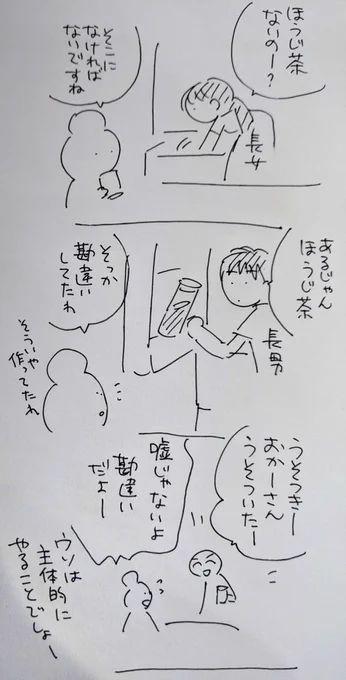 ほうじ茶
ないのー?
長女
そこに
なければ
ないですね
あるじゃん
ほうじ茶
長男
そっか
勘違い
してたわ
そういや
作ってたわ
うそつきー
おかーさん
うそついたー
嘘じゃないよ
勘違い
だよー
ウソは
主体的に
やることでしょー